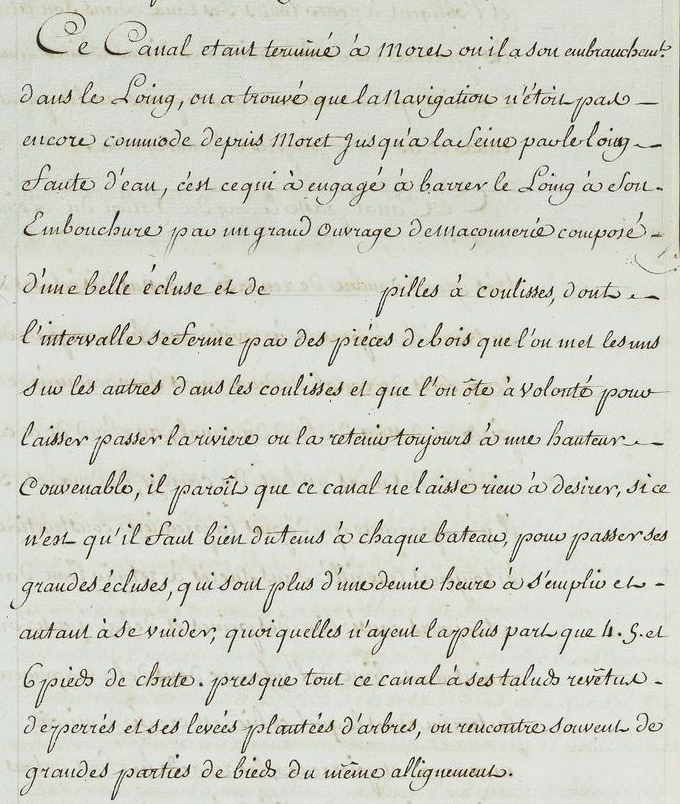 Ce Canal etant terminé à Moret ou il a son embrauchemt.
dans le Loing, on a trouvé que la Navigation n'étoit pas
encore commode depuis Moret Jusqu'a la Seine par le loing
faute d'eau, c'est ce qui à engagé à barrer le Loing à Son
Embouchure par un grand Ouvrage de maçonnerie composé
d'une belle écluse et de pilles à coulisses, dont
l'intervalle se ferme par des piéces de bois que l'on met les uns
sur les autres dans les coulisses et que l'on ôte à volonté pour
laisser passer la riviere ou la retenir toujours à une hauteur
Convenable, il paroît que ce canal ne laisse rien à desirer, si ce
n'est qu'il faut bien du tems à chaque bateau, pour passer ses
grandes écluses, qui sont plus d'une demie heure à s'emplir et
autant à se vuider, quoiquelles n'ayent la plus part que 4. 5. et
6 pieds de chute. presque tout ce canal à ses taluds revêtus
de perrés et ses levées plantées d'arbres, on rencontre souvent de
grandes parties de bieds du même allignement.